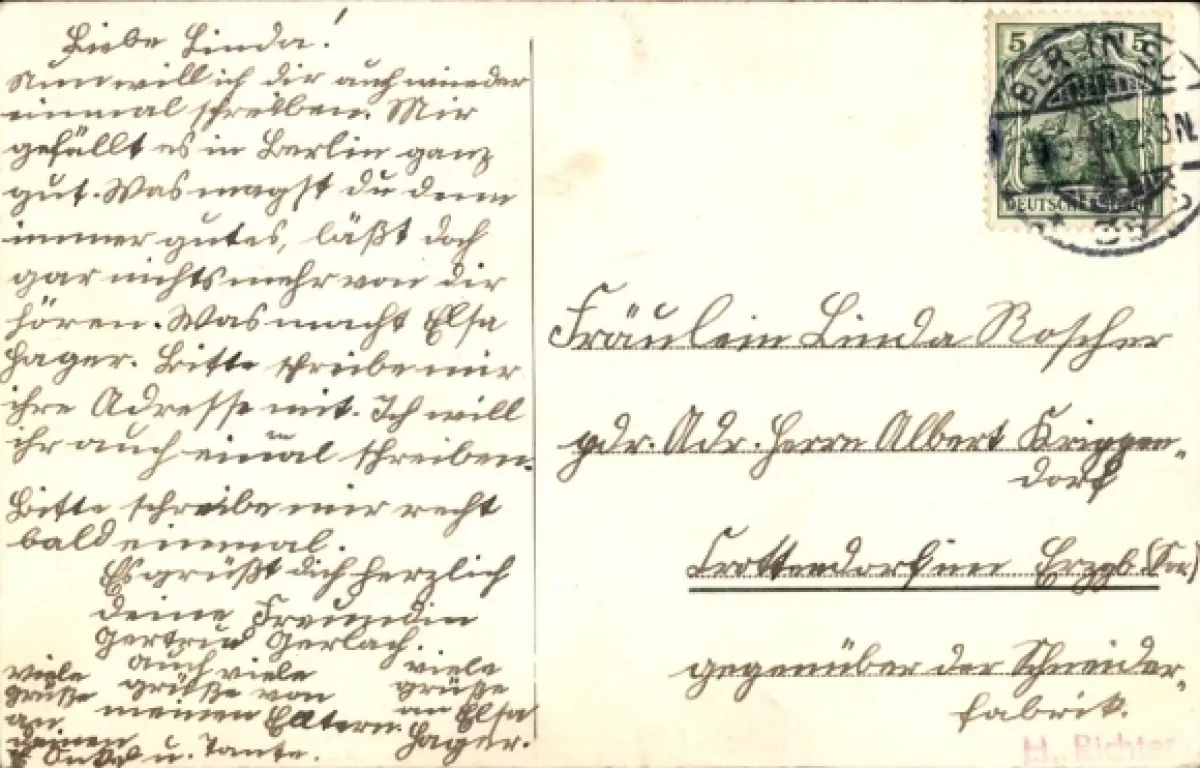 Liebe Linda!
Nun will ich dir auch wieder
einmal schreiben. Mir
gefällt es in Berlin ganz
gut. Was magst du denn
immer gutes, läßt doch
gar nichts mehr von dir
hören. Was macht Elsa
Hager. Bitte schreibe mir
ihre Adresse mit. Ich will
ihr auch einmal schreiben.
Bitte schreibe mir recht
bald einmal.
Es grüßt dich herzlich
deine Freundin
Gertrud Gerlach.
viele
grüße
an
deinen
Onkel u. Tante.
auch viele
grüße von
meinen Eltern.
viele
grüße
an Elsa
Hager.
5 5
DEUTSCHES REICH
BERLIN
Fräulein Linda Roscher
pdr. Adr. Herrn Albert Krippen-
dorf
Crottendorf im Erzgb.
gegenüber der Schneider-
fabrik.
H. Richter